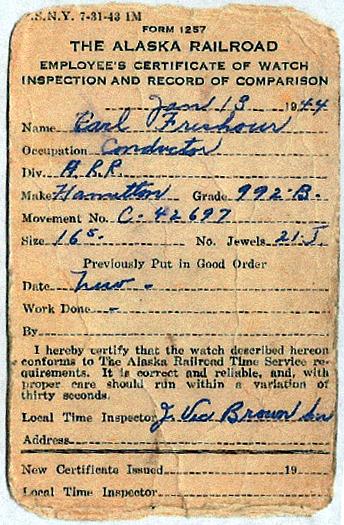 .S.N.Y. 7-31-43 1M
FORM 1257
THE ALASKA RAILROAD
EMPLOYEE'S CERTIFICATE OF WATCH
INSPECTION AND RECORD OF COMPARISON
Jan 13 1944
Name Earl Frishour
Occupation Conductor
Div. A.R.R.
Make Hamilton Grade 992-B.
Movement No. C-42697
Size 16s. No. Jewels 21.J.
Previously Put in Good Order
Date New -
Work Done -
By
I hereby certify that the watch described hereon
conforms to The Alaska Railroad Time Service re-
quirements. It is correct and reliable, and, with
proper care should run within a variation of
thirty seconds.
Local Time Inspector J. Vic Brown
Address
New Certificate Issued 19
Local Time Inspector